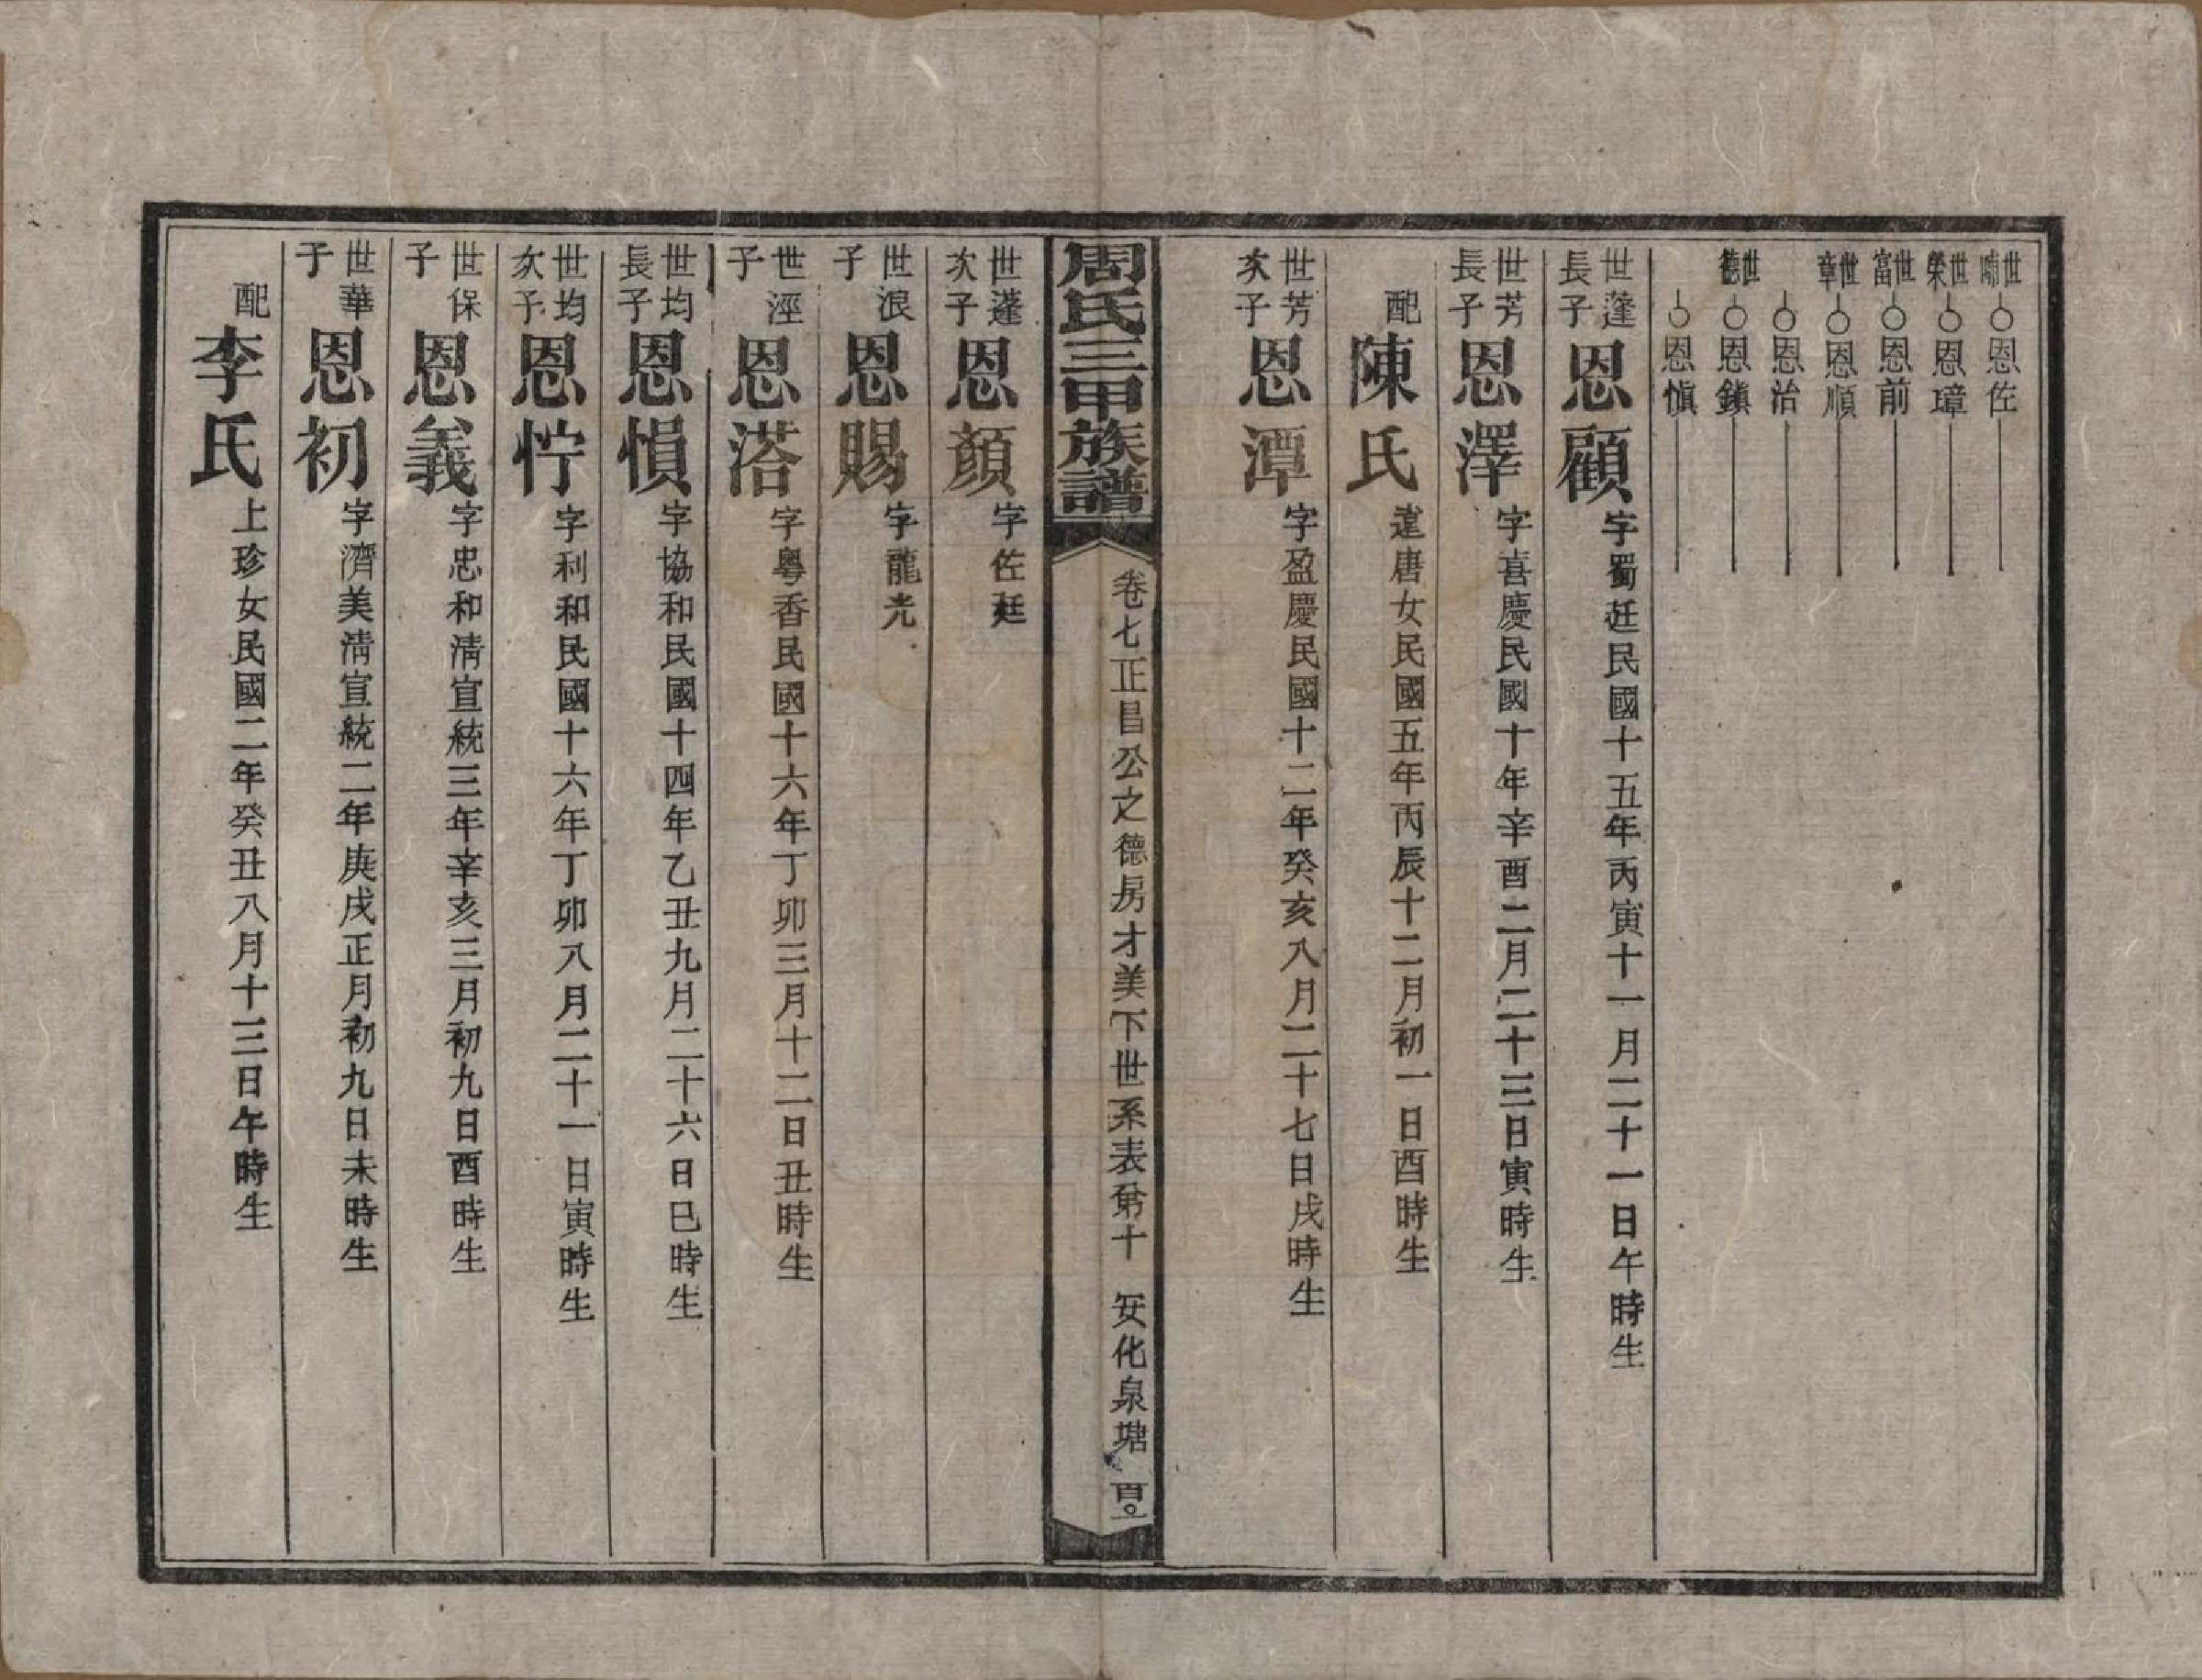 世 恩佐
世榮 恩璋
世富 恩前
世章 恩順
恩治
世德 恩鎮
恩慎
世蓬長子 恩顧 字蜀廷民國十五年丙寅十一月二十一日午時生
世芳長子 恩澤 字喜慶民國十年辛酉二月二十三日寅時生
配 陳氏 達唐女民國五年丙辰十二月初一日酉時生
世芳次子 恩潭 字盈慶民國十二年癸亥八月二十七日戌時生
周氏三甲族譜 卷七正昌公之德房才美下世系表第十 安化泉塘
世蓬次子 恩顏 字佐廷
世浪子 恩賜 字龍光
世淫子 恩溚 字粵香民國十六年丁卯三月十二日丑時生
世均長子 恩慎 字協和民國十四年乙丑九月二十六日巳時生
世均次子 恩佇 字利和民國十六年丁卯八月二十一日寅時生
世保子 恩義 字忠和清宣統三年辛亥三月初九日酉時生
世華子 恩初 字濟美清宣統二年庚戌正月初九日未時生
配 李氏 上珍女民國二年癸丑八月十三日午時生